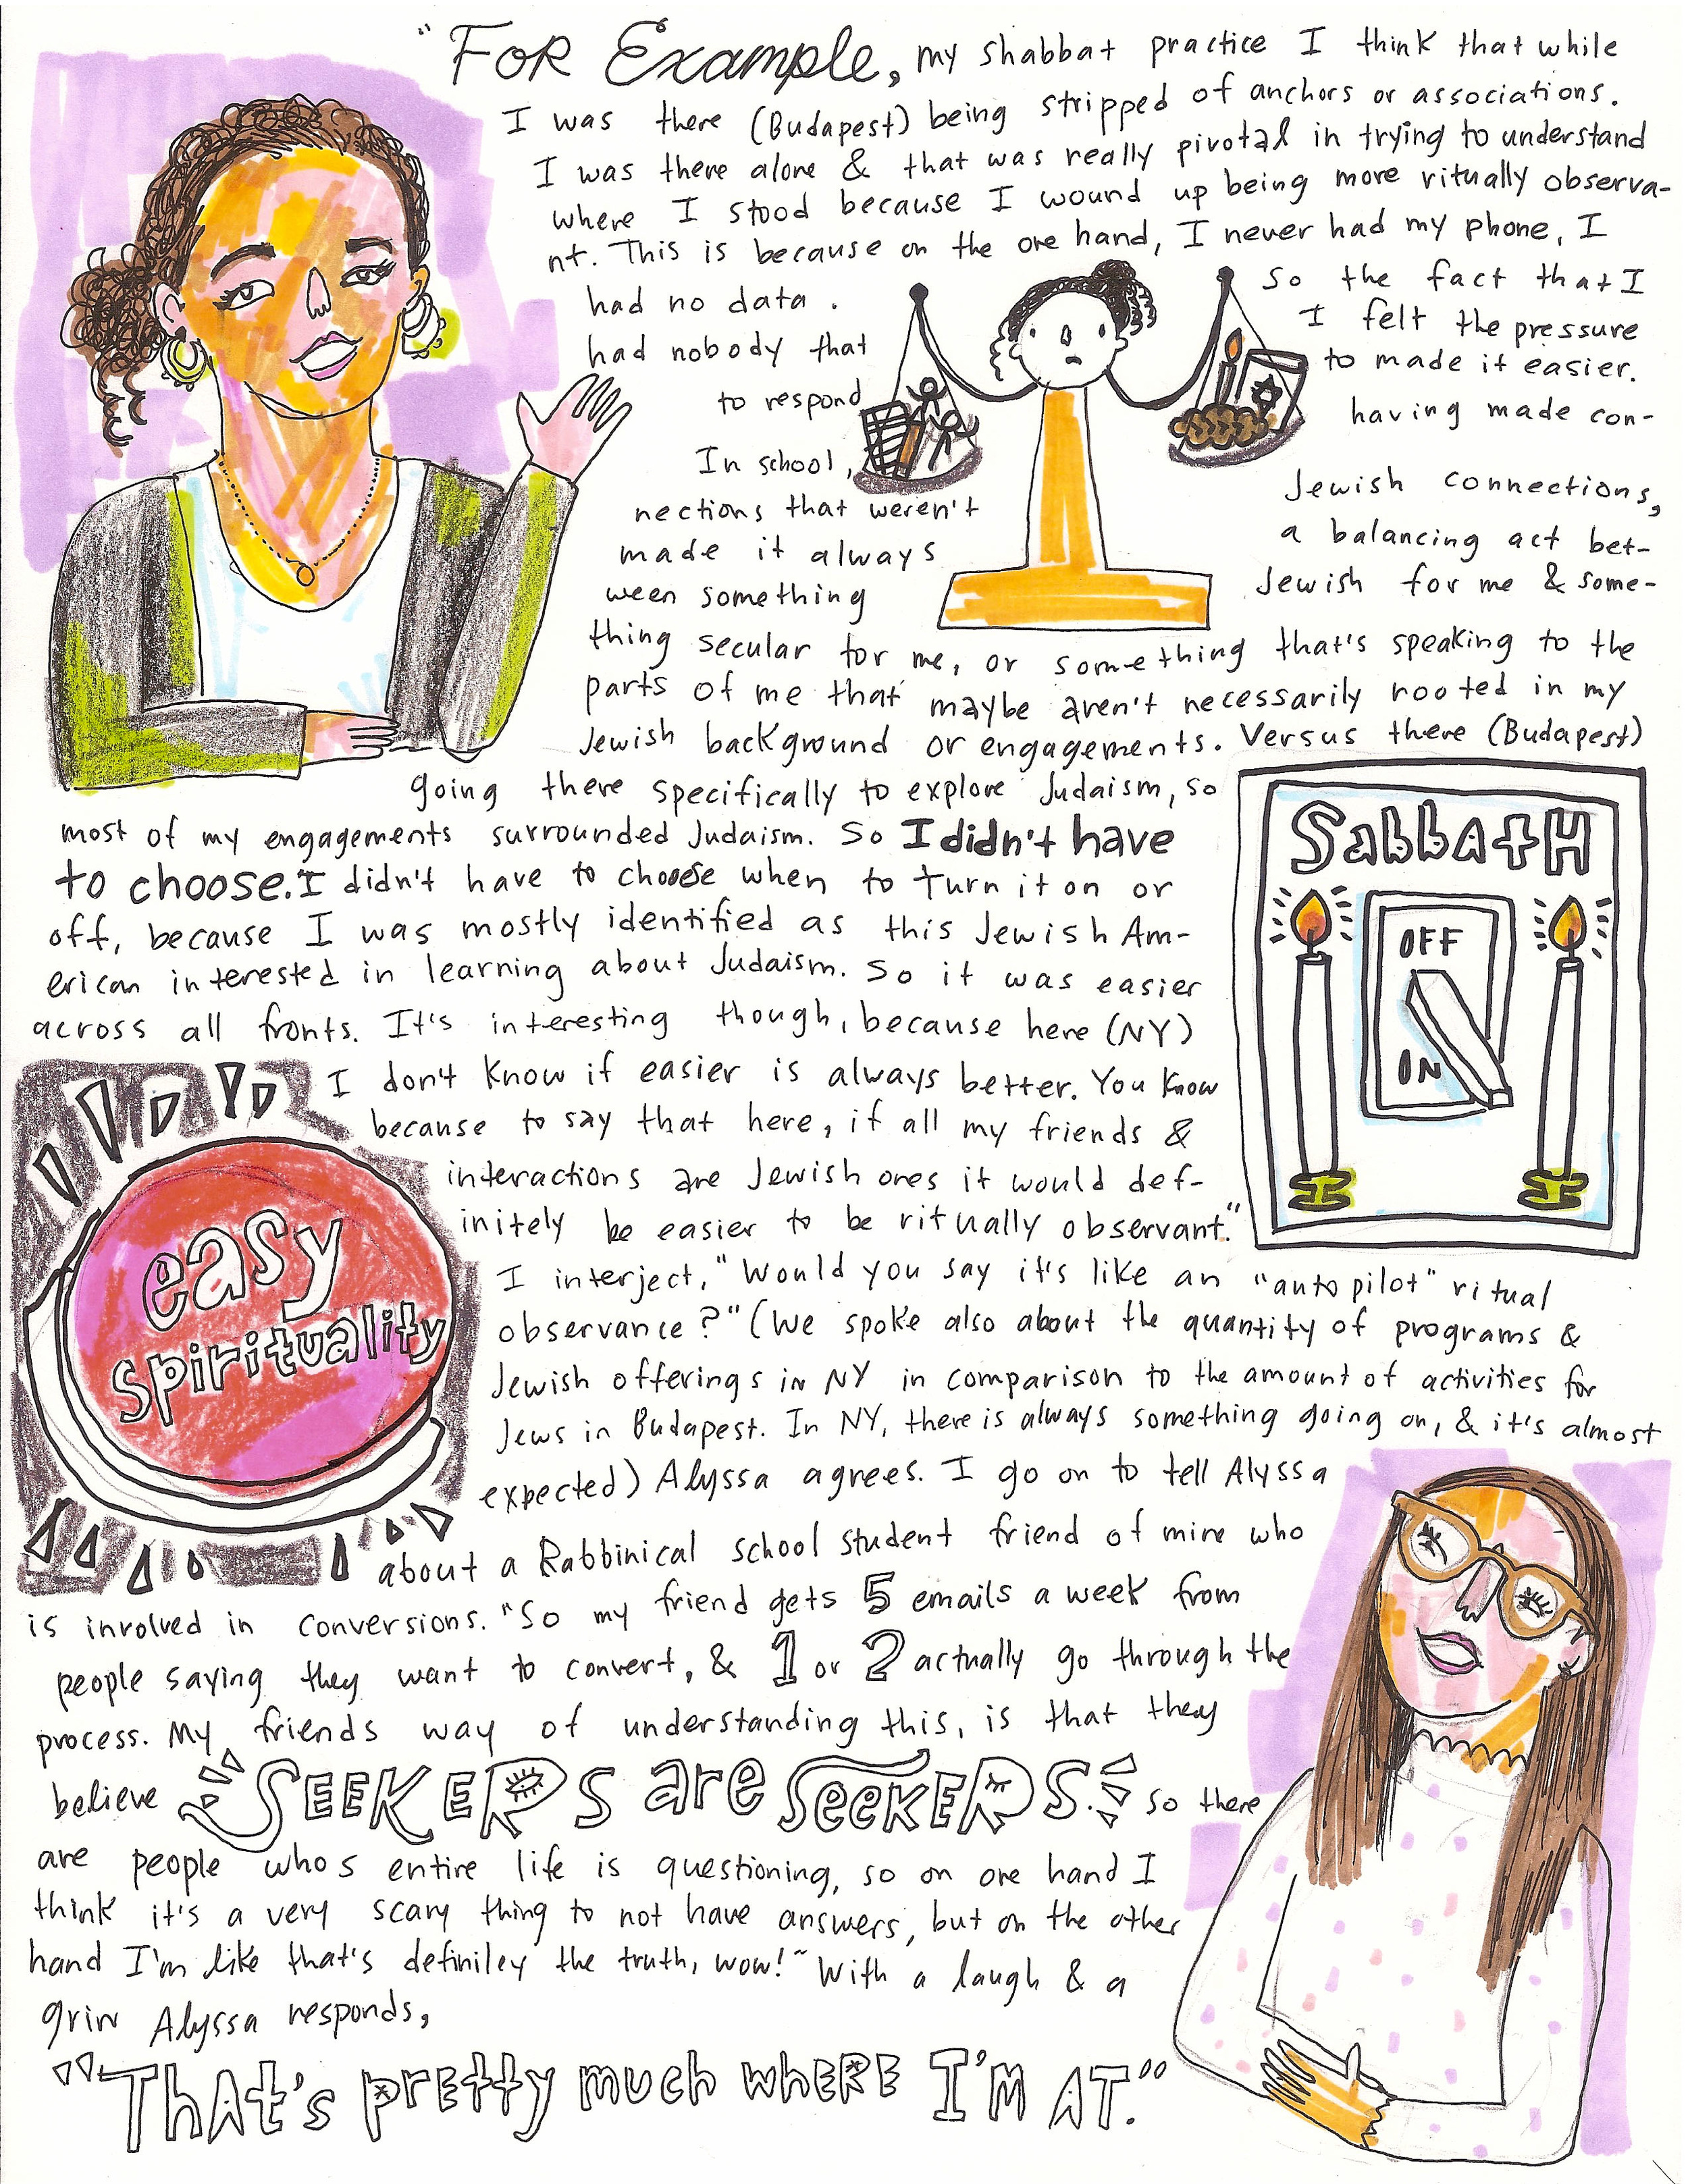 "FOR Example, my shabbat practice I think that while
I was there (Budapest) being stripped of anchors or associations.
I was there alone & that was really pivotal in trying to understand
where I stood because I wound up being more ritually observa-
nt. This is because on the one hand, I never had my phone, I
had no data. So the fact that I
had nobody that I felt the pressure
to respond to made it easier.
In school, having made con-
nections that weren't Jewish connections,
made it always a balancing act bet-
ween something Jewish for me & some-
thing secular for me, or something that's speaking to the
parts of me that maybe aren't necessarily rooted in my
Jewish background or engagements. Versus there (Budapest)
going there specifically to explore Judaism, so
most of my engagements surrounded Judaism. So I didn't have
to choose. I didn't have to choose when to turn it on or
off, because I was mostly identified as this Jewish Am-
erican interested in learning about Judaism. So it was easier
across all fronts. It's interesting though, because here (NY)
I don't know if easier is always better. You know
because to say that here, if all my friends &
interactions are Jewish ones it would def-
initely be easier to be ritually observant."
SabbATH
OFF
ON
easy
spirituality
I interject, "Would you say it's like an "auto pilot" ritual
observance?" (We spoke also about the quantity of programs &
Jewish offerings in NY in comparison to the amount of activities for
Jews in Budapest. In NY, there is always something going on, & it's almost
expected) Alyssa agrees. I go on to tell Alyssa
about a Rabbinical school student friend of mine who
is involved in conversions. "So my friend gets 5 emails a week from
people saying they want to convert, & 1 or 2 actually go through the
process. My friends way of understanding this, is that they
believe SEEKERS are SeeKERS. so there
are people whos entire life is questioning, so on one hand I
think it's a very scary thing to not have answers, but on the other
hand I'm like that's definiley the truth, wow!" With a laugh & a
grin Alyssa responds,
"ThAt's pretty much wheRE I'M AT."